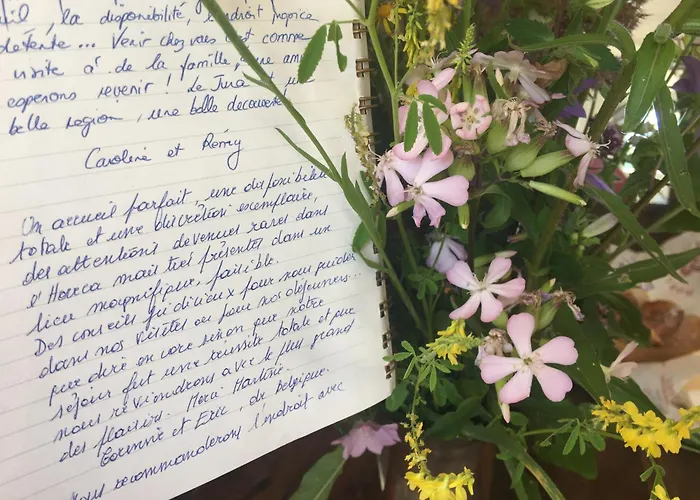 il, la disponibilité, l'endroit propice
détente... Venir chez vous est comme
visite à de la famille, une ami
espérons revenir ! Le Jura est une
belle région, une belle découverte,
Caroline et Rémy
Un accueil parfait, une disponibilité
totale et une discrétion exemplaire,
des attentions devenues rares dans
l'Horeca mais très présentes dans un
lieu magnifique, paisible.
Des conseils judicieux pour nous guider
dans nos visites ou pour nos déjeuners...
que dire encore sinon que notre
séjour fut une réussite totale et que
nous reviendrons avec le plus grand
des plaisirs. Merci Martine.
Corinne et Eric, de Belgique.
Nous recommanderons l'endroit avec